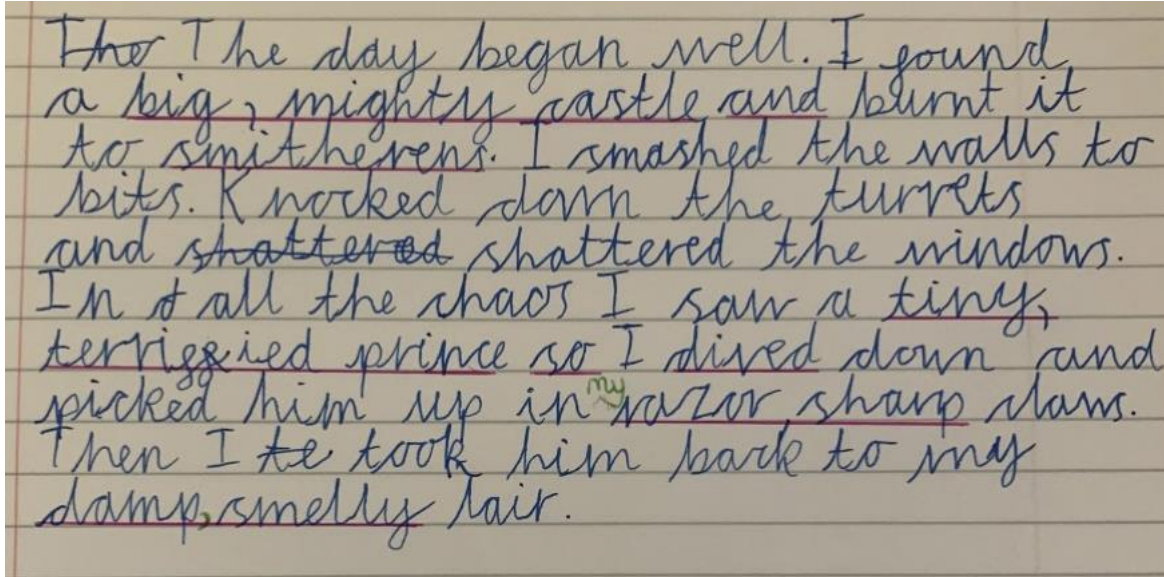 The The day began well. I found
a big, mighty castle and burnt it
to smitherens. I smashed the walls to
bits. Knocked down the turrets
and shattered shattered the windows.
In all the chaos I saw a tiny,
terriffied prince so I dived down and
picked him up in my razor sharp claws.
Then I te took him back to my
damp, smelly lair.